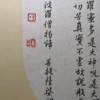 羅蜜多是大神咒是大
切苦真實不虛故說般
波羅僧揭諦 菩提薩婆